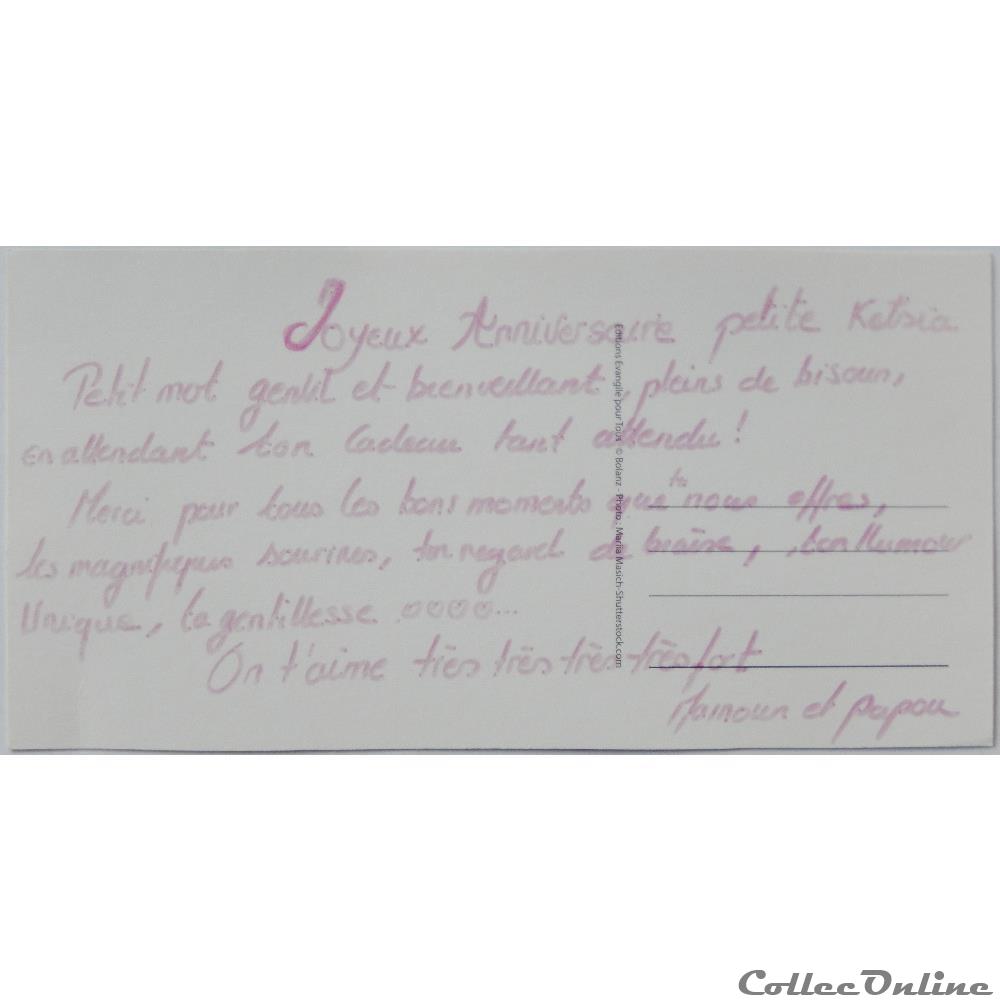 Joyeux Anniversaire petite Ketsia
Petit mot gentil et bienveillant, pleins de bisoun,
en attendant ton cadeau tant attendu !
Merci pour tous les bons moments que tu nous offres,
tes magnifiques sourires, ton regard de braise, ton Humour
Unique, ta gentillesse ♡♡♡♡...
On t'aime très très très très fort
Mamoun et papou
Editions Evangile pour Tous © Bolanz - Photo : Mariia Masich-Shutterstock.com
CollecOnline